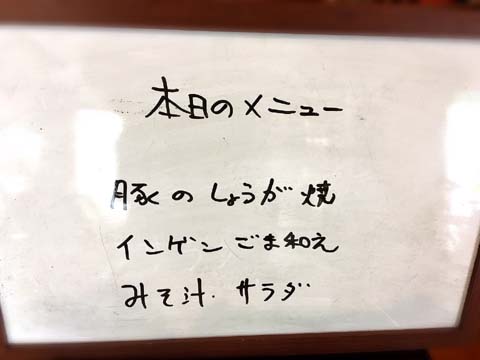 本日のメニュー
豚のしょうが焼
インゲンごま和え
みそ汁. サラダ